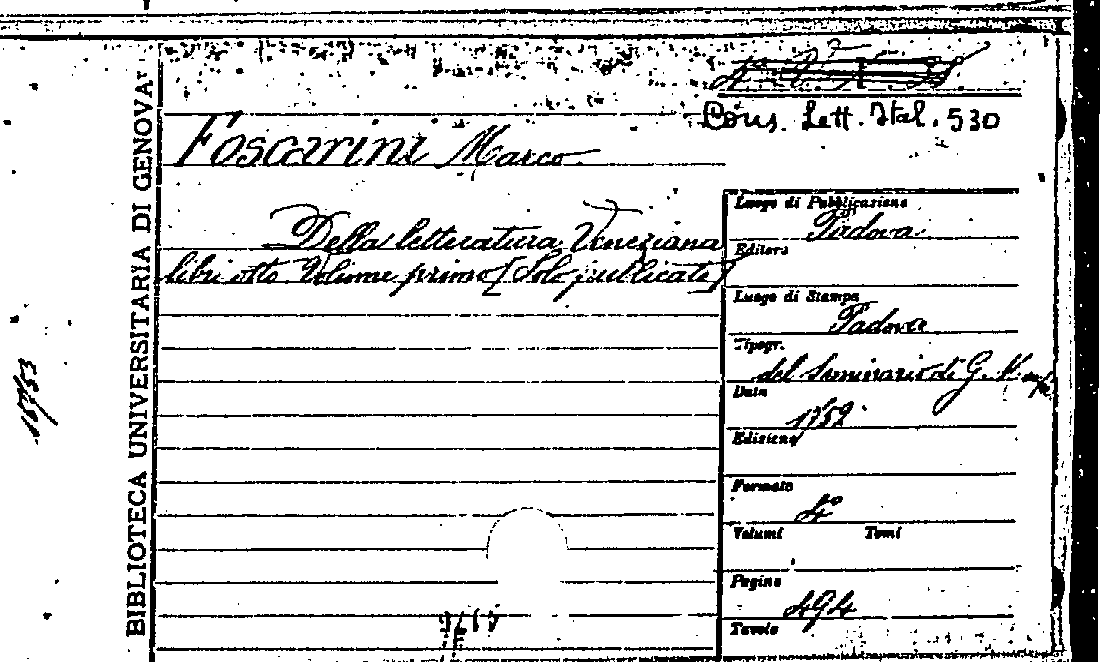 BIBLIOTECA UNIVERSITARIA DI GENOVA
Cons. Lett. Ital. 530
Foscarini Marco
Della letteratura Veneziana
libri otto Volume primo [Solo publicato]
Luogo di Pubblicazione
Padova
Editore
Luogo di Stampa
Padova
Tipogr.
del Seminario di G.
Data
1752
Edizione
Formato
4º
Volumi Tomi
Pagine
494
Tavole